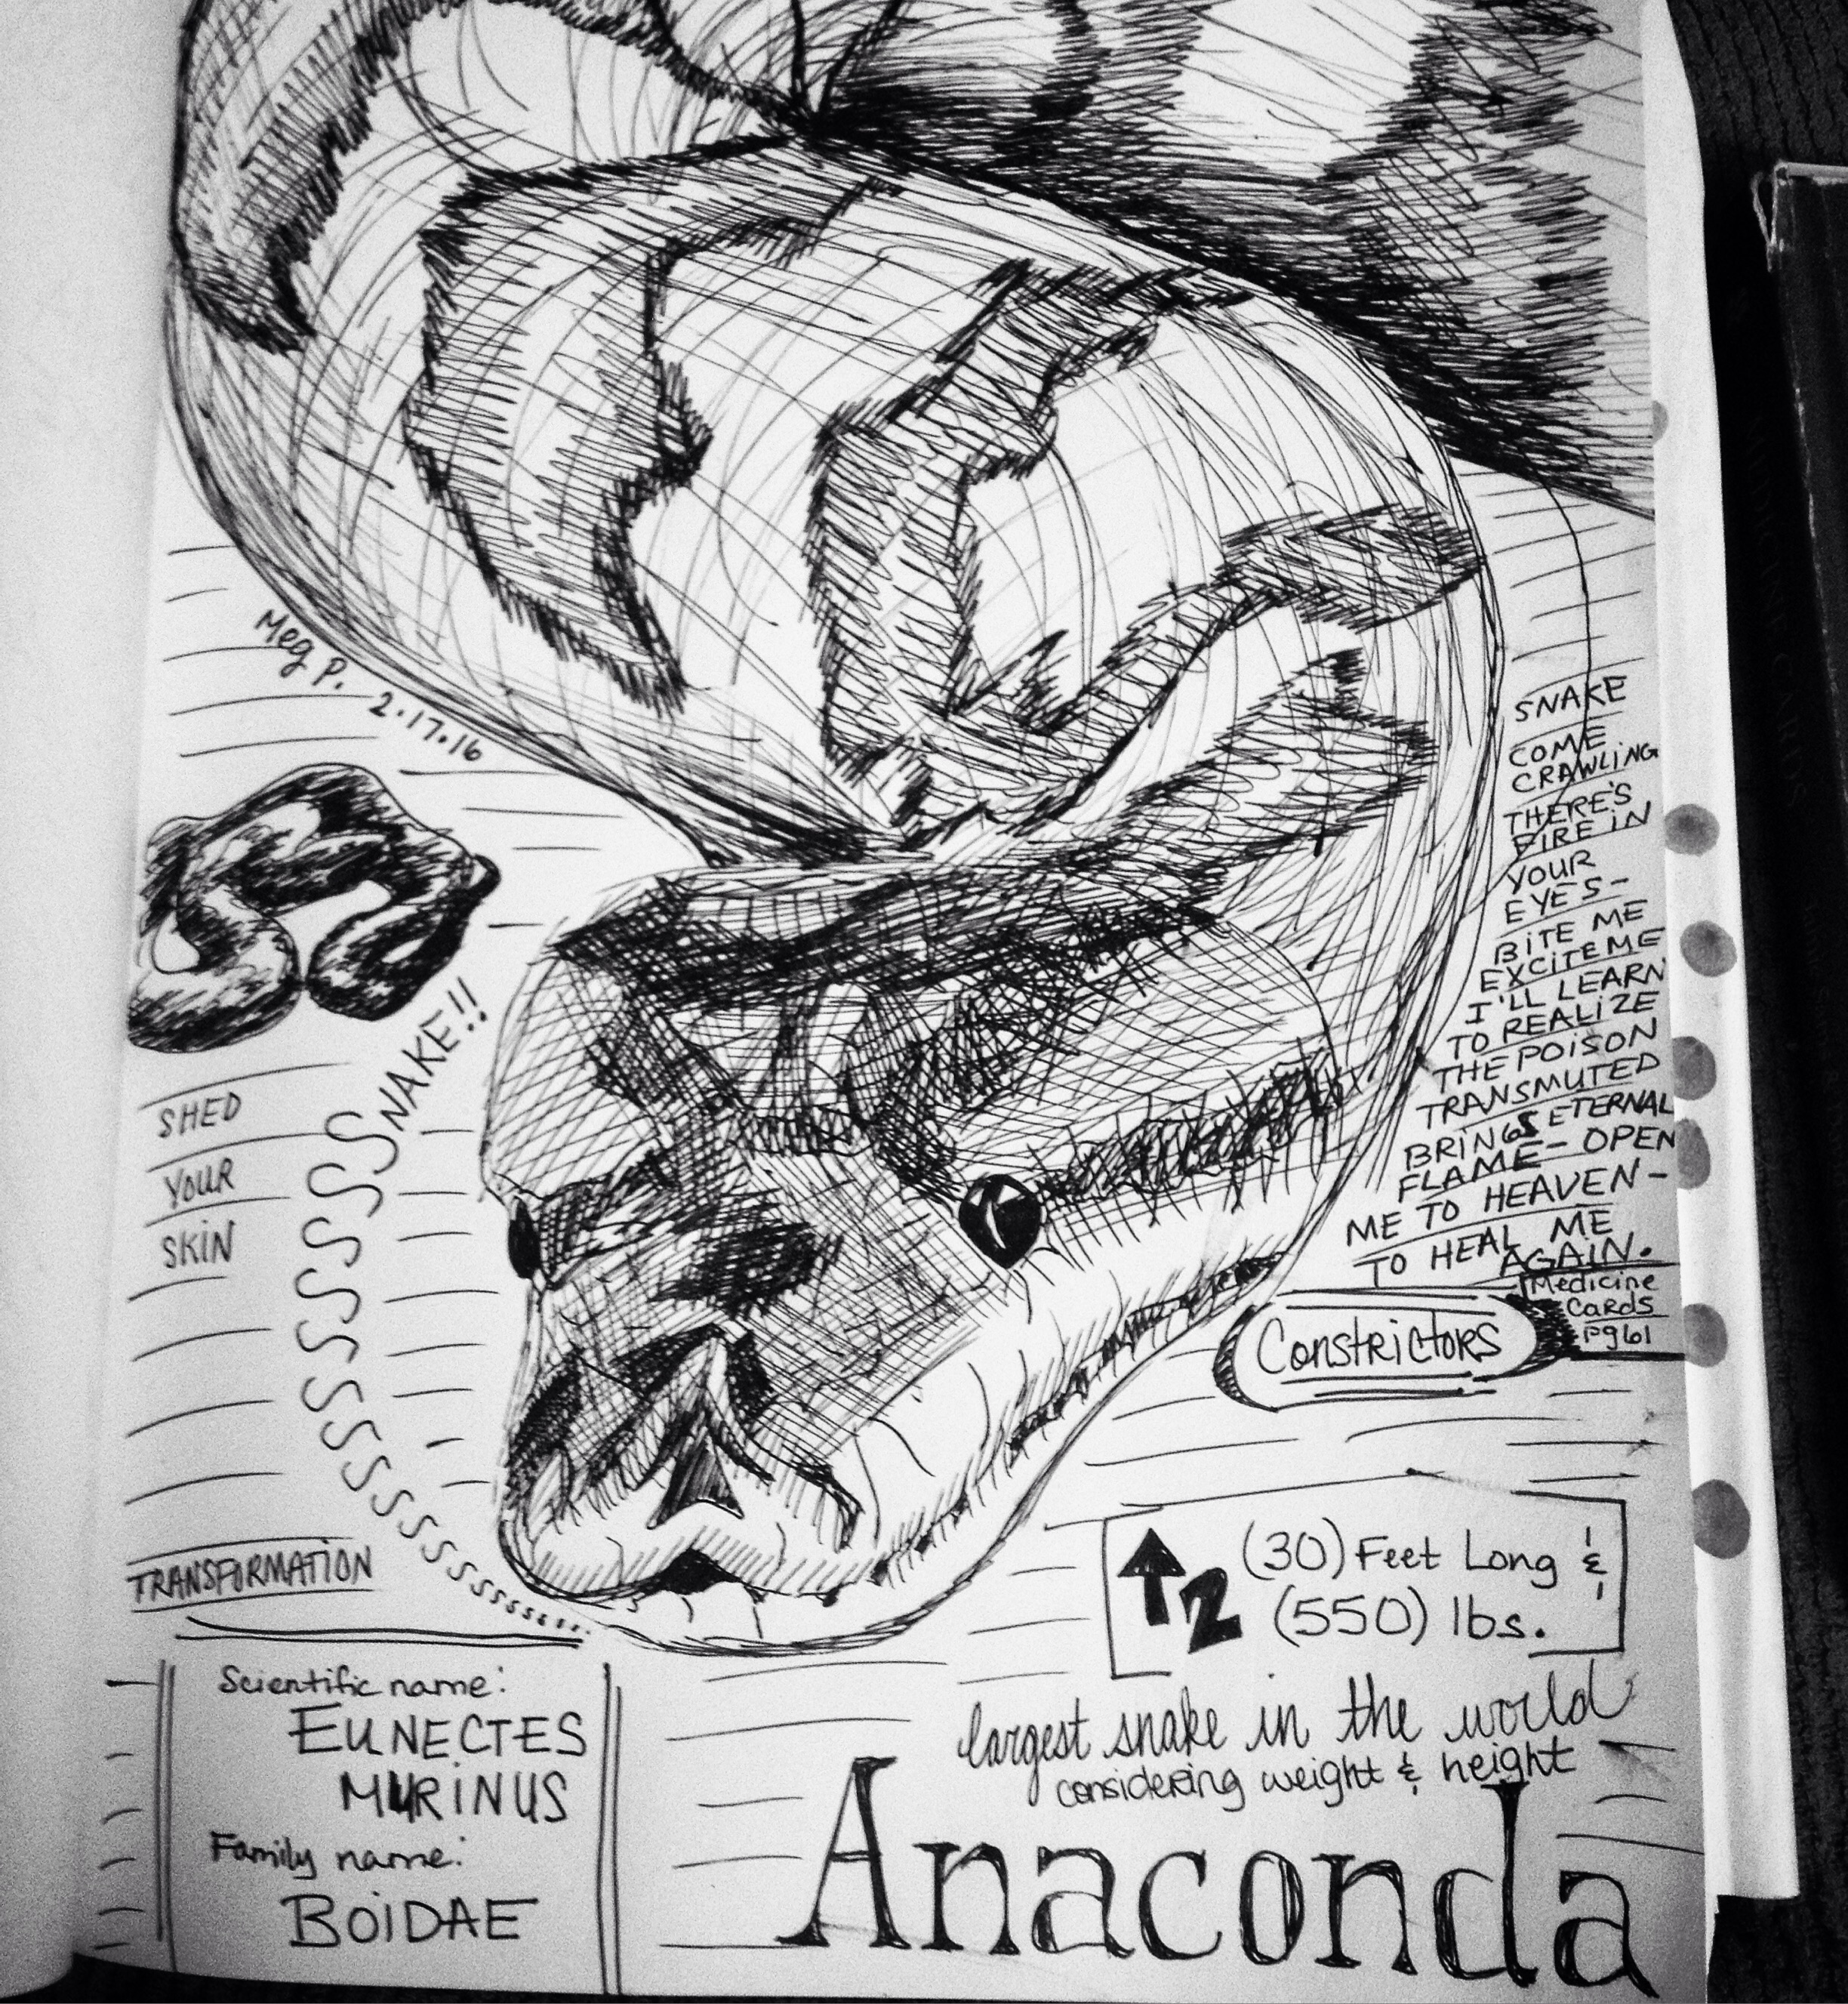 Meg P. 2.17.16
SNAKE
COME
CRAWLING
THERE'S
FIRE IN
YOUR
EYES-
BITE ME
EXCITE ME
I'LL LEARN
TO REALIZE
THE POISON
TRANSMUTED
BRINGS ETERNAL
FLAME - OPEN
ME TO HEAVEN -
TO HEAL ME
AGAIN.
Medicine
Cards
pg61
SSSSSSSSSSSSSSSSSNAKE!!
SHED
YOUR
SKIN
TRANSFORMATION
Constrictors
↑2 (30) Feet Long &
(550) lbs.
Scientific name:
EUNECTES
MURINUS
Family name:
BOIDAE
largest snake in the world
considering weight & height
Anaconda